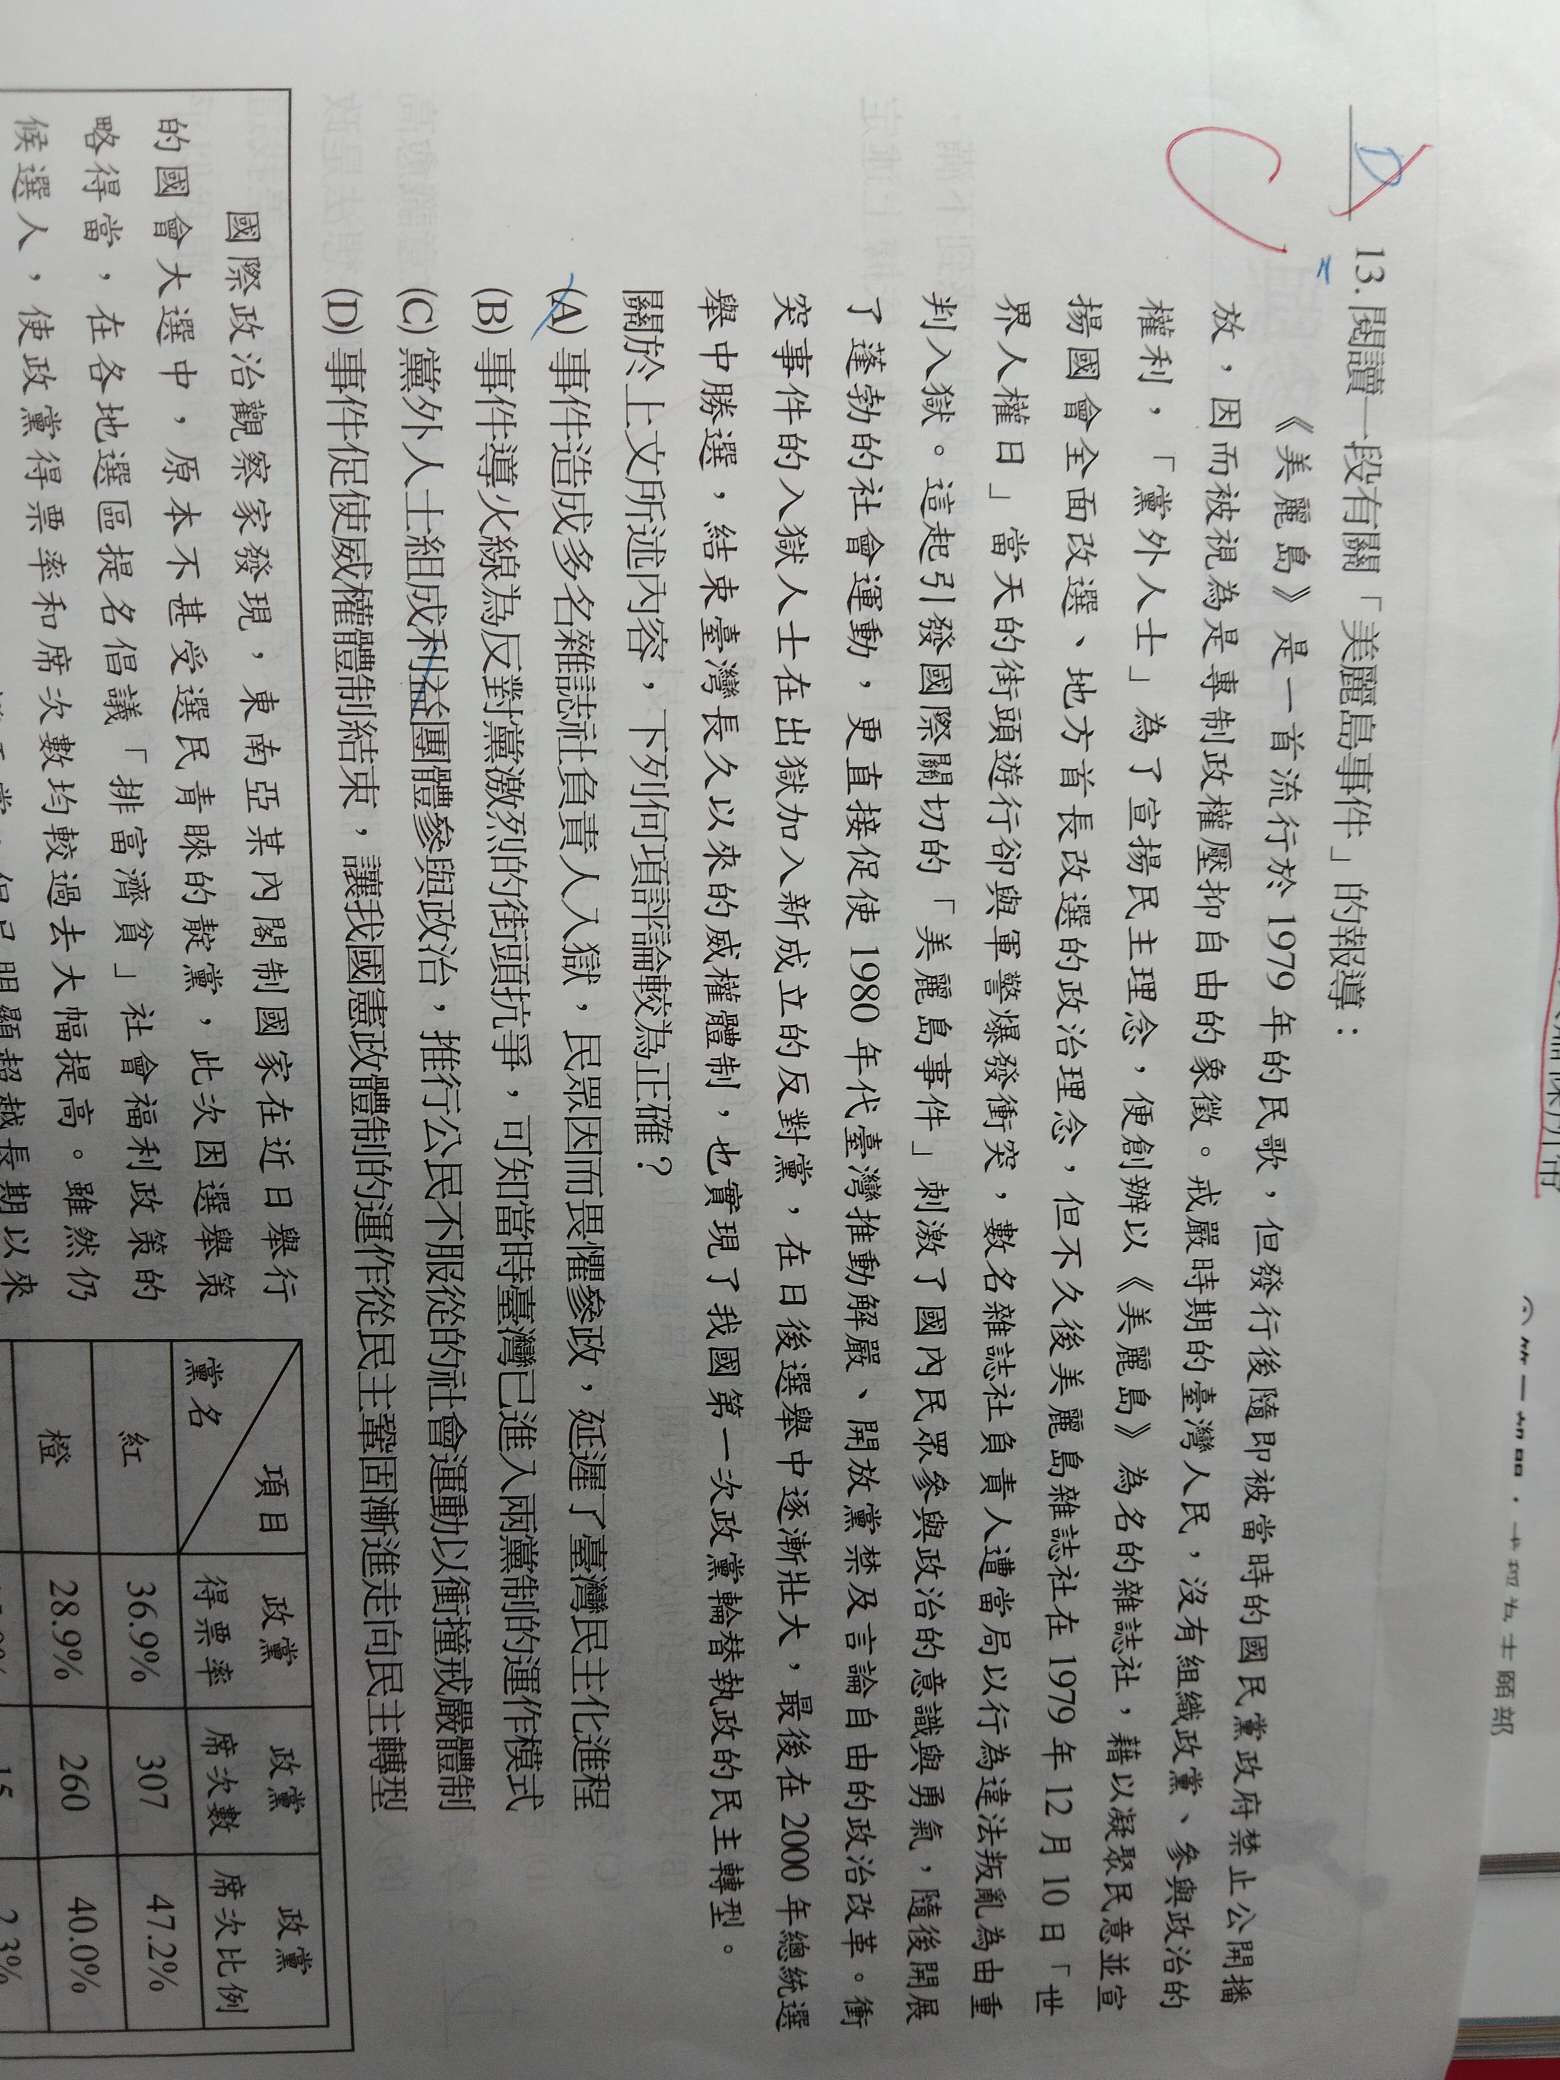 D
C
13.閱讀一段有關「美麗島事件」的報導：
《美麗島》是一首流行於1979年的民歌，但發行後隨即被當時的國民黨政府禁止公開播
放，因而被視為是專制政權壓抑自由的象徵。戒嚴時期的臺灣人民，沒有組織政黨、參與政治的
權利，「黨外人士」為了宣揚民主理念，便創辦以《美麗島》為名的雜誌社，藉以凝聚民意並宣
揚國會全面改選、地方首長改選的政治理念，但不久後美麗島雜誌社在1979年12月10日「世
界人權日」當天的街頭遊行卻與軍警爆發衝突，數名雜誌社負責人遭當局以行為違法叛亂為由重
判入獄。這起引發國際關切的「美麗島事件」刺激了國內民眾參與政治的意識與勇氣，隨後開展
了蓬勃的社會運動，更直接促使1980年代臺灣推動解嚴、開放黨禁及言論自由的政治改革。衝
突事件的入獄人士在出獄加入新成立的反對黨，在日後選舉中逐漸壯大，最後在2000年總統選
舉中勝選，結束臺灣長久以來的威權體制，也實現了我國第一次政黨輪替執政的民主轉型。
關於上文所述內容，下列何項評論較為正確？
(A)事件造成多名雜誌社負責人入獄，民眾因而畏懼參政，延遲了臺灣民主化進程
(B)事件導火線為反對黨激烈的街頭抗爭，可知當時臺灣已進入兩黨制的運作模式
(C)黨外人士組成利益團體參與政治，推行公民不服從的社會運動以衝撞戒嚴體制
(D)事件促使威權體制結束，讓我國憲政體制的運作從民主鞏固漸進走向民主轉型
國際政治觀察家發現，東南亞某內閣制國家在近日舉行
的國會大選中，原本不甚受選民青睞的靛黨，此次因選舉策
略得當，在各地選區提名倡議「排富濟貧」社會福利政策的
候選人，使政黨得票率和席次數均較過去大幅提高。雖然仍
明顯超越長期以來
項目 政黨得票率 政黨席次數 政黨席次比例
黨名
紅 36.9% 307 47.2%
橙 28.9% 260 40.0%
15 2.3%